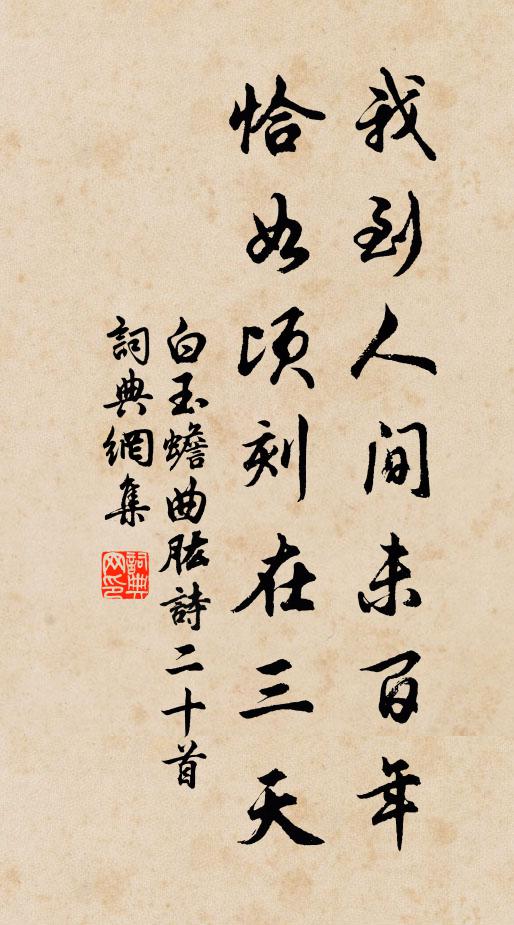 我到人間未百年
恰如頃刻在三天
白玉蟾曲肱詩二十首
詞典網集
詞典網印